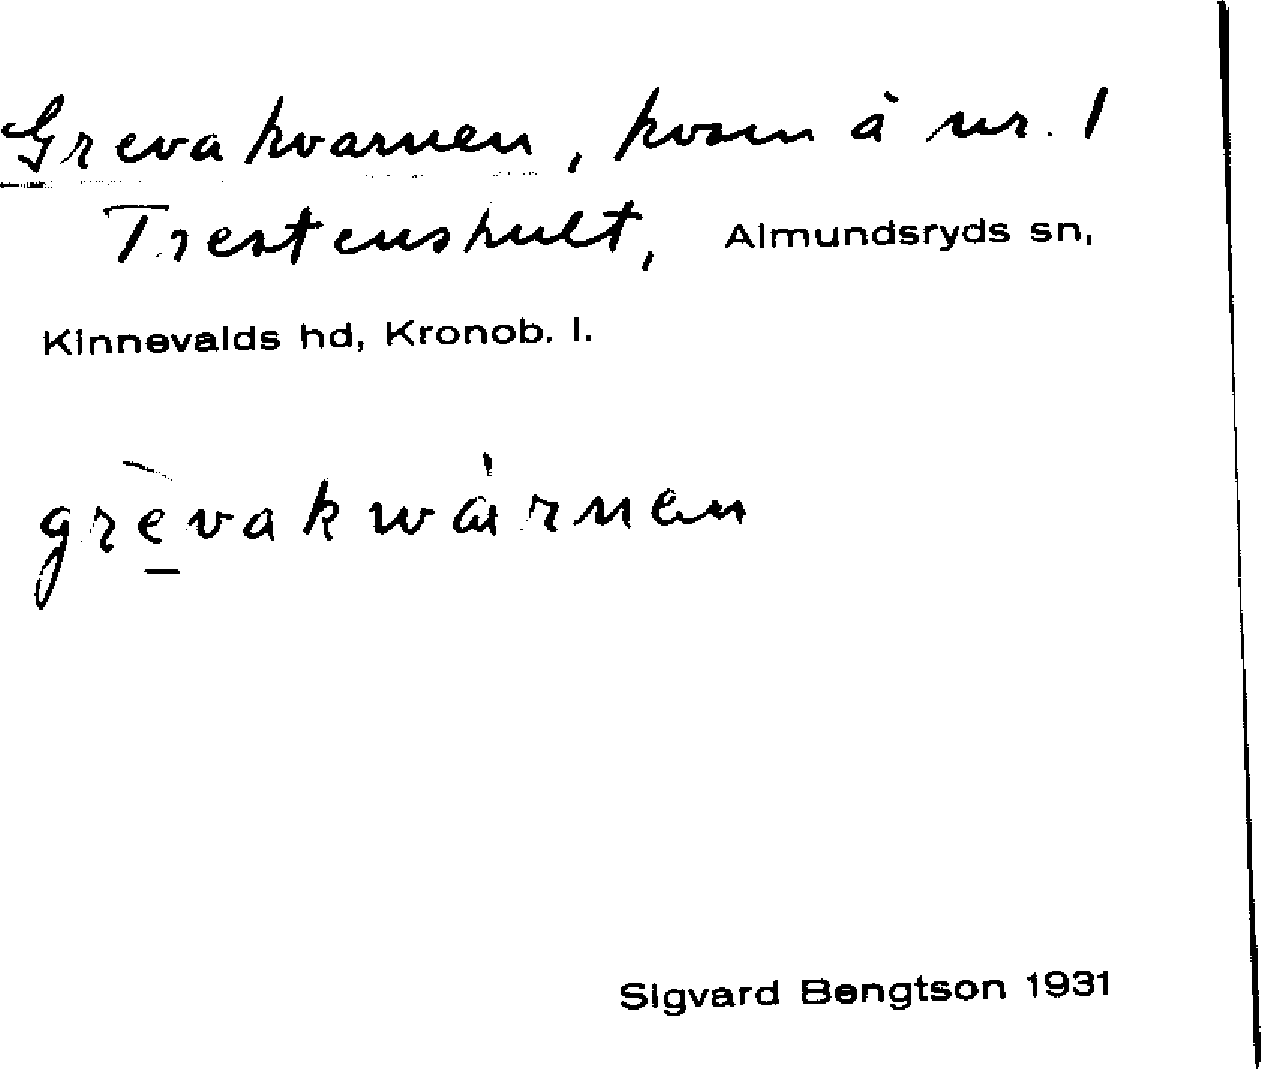 Grevakvarnen, kvarn å nr. 1
Trestenshult, Almundsryds sn,
Kinnevalds hd, Kronob. l.
grèvakwárnen
Sigvard Bengtson 1931